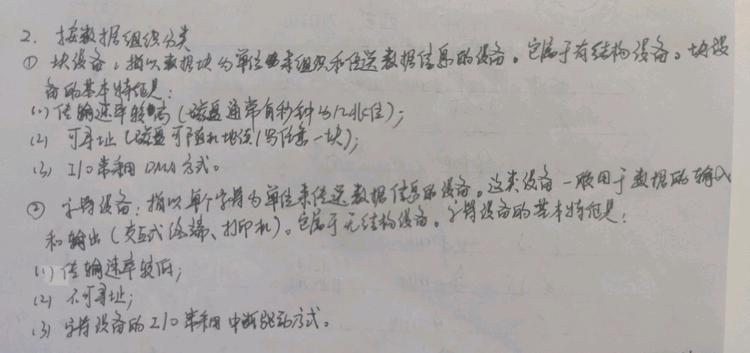 2. 按数据组织分类
① 块设备：指以数据块为单位来组织和传送数据信息的设备。它属于有结构设备。块设
备的基本特征是：
(1) 传输速率较高 (磁盘通常每秒钟为12兆位)；
(2) 可寻址 (磁盘可随机地读/写任意一块)；
(3) I/O常用DMA方式。
② 字符设备：指以单个字符为单位来传送数据信息的设备。这类设备一般用于数据的输入
和输出 (交互式终端、打印机)。它属于无结构设备。字符设备的基本特征是：
(1) 传输速率较低；
(2) 不可寻址；
(3) 字符设备的I/O常用中断驱动方式。